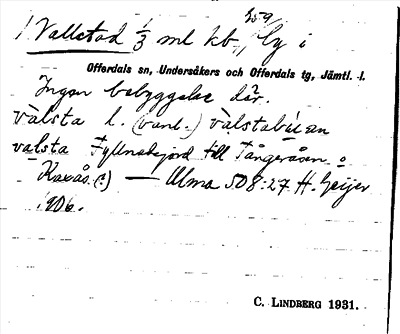 559
1 Vallstad 1/3 ml kb., by i
Offerdals sn, Undersåkers och Offerdals tg, Jämtl. l.
Ingen bebyggelse där.
vàlsta l. (vanl.) vàlstabúan
valsta Fyllnadsjord till Tångeråsen o
Kaxås (?) — Ulma 508:27 H. Geijer
1906.
C. LINDBERG 1931.